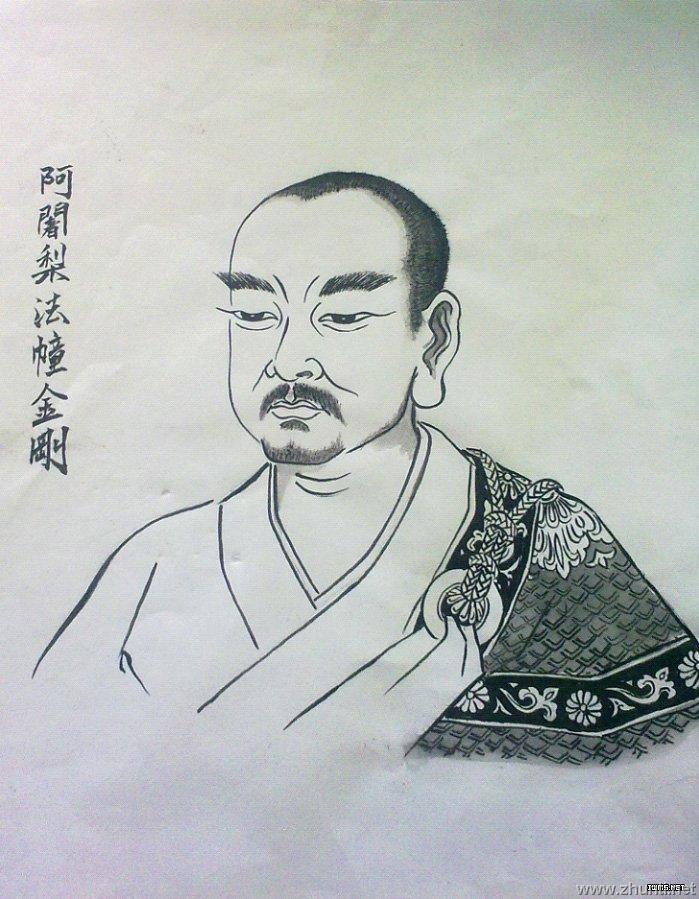 阿闍梨法幢金剛
www.zhunti.net